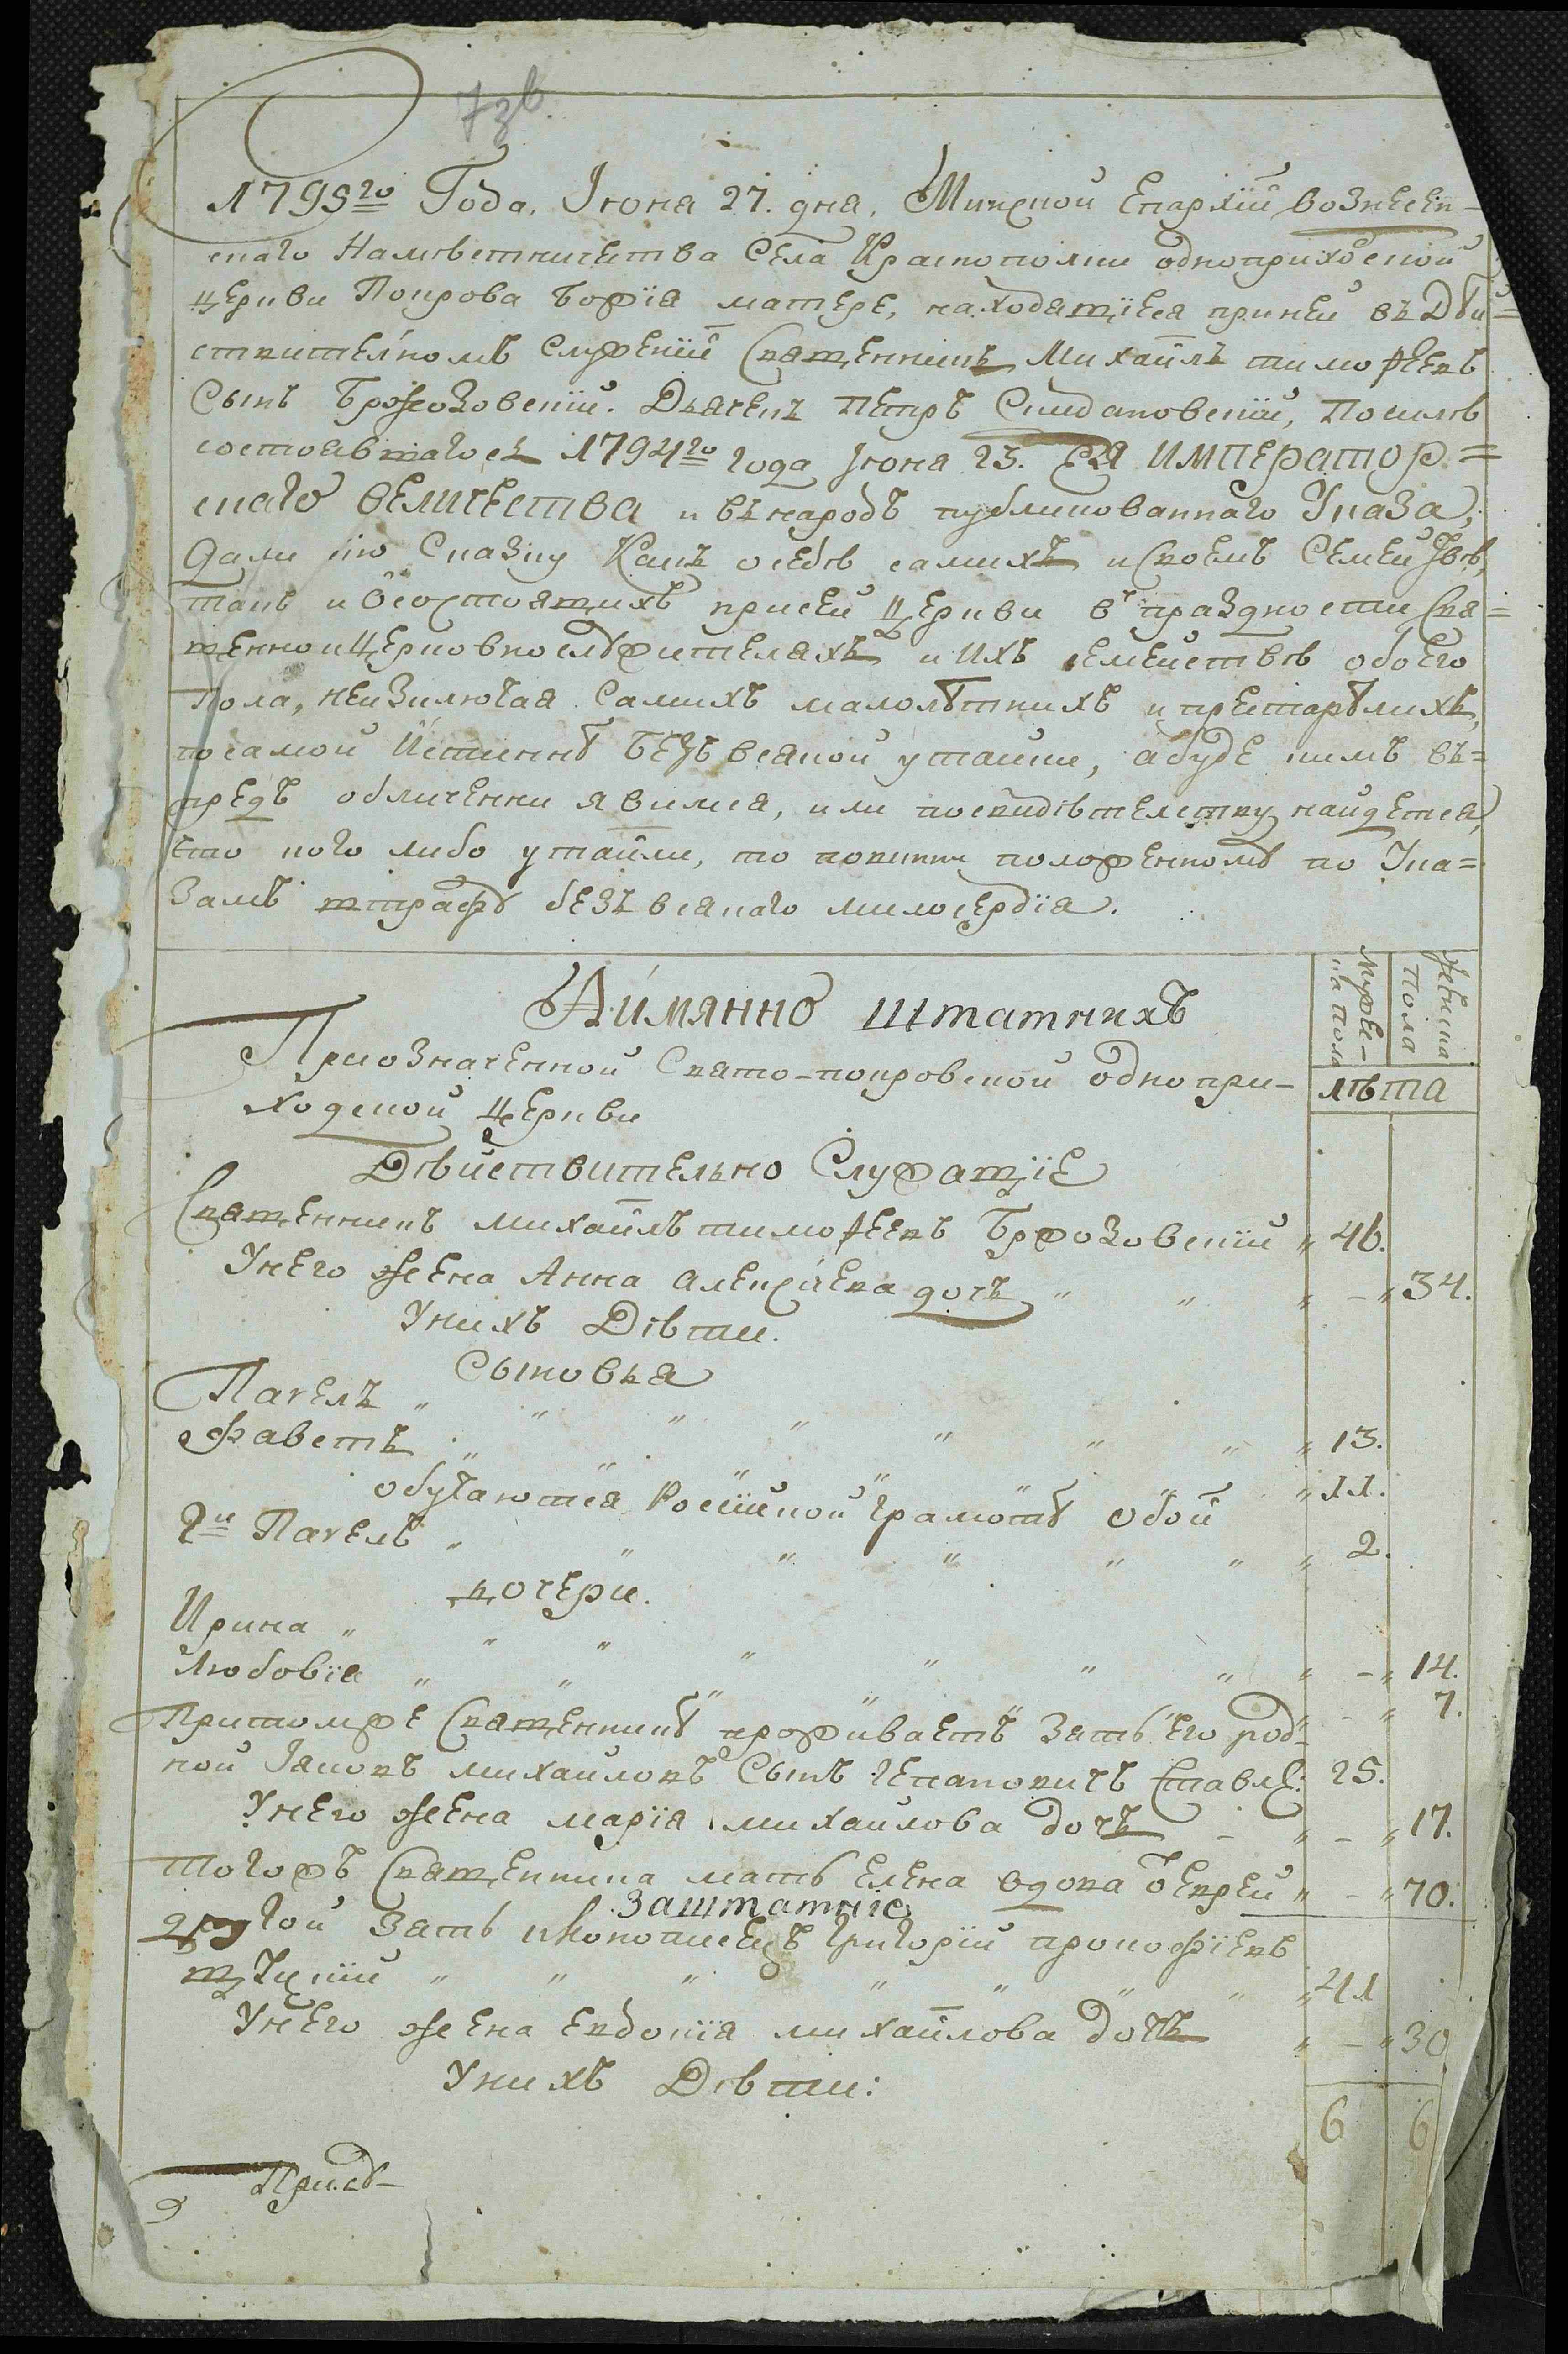 7зв.
1795го Года. Іюня 27. дня, Минской Епархїи вознесен-
скаго Намѣстничества Села Краснополки одноприходской
церкви Покрова Божїя матере, находящїеся приней въ Дѣй=
ствителномъ Служенїи Священникъ Михаилъ тимофеевъ
Сынъ Бржозовскїи. Дьячекъ Петръ Симдановскїи, Посилѣ
состоявшагось 1794го года Іюня 23. ЕЯ ИМПЕРАТОР=
скаго величества и въ народъ публикованнаго Указа,
Дали сїю Сказку Какъ осебѣ самихъ и своемъ Семействѣ,
такъ и осостоящихъ присей церкви в праздности Свя=
щенноицерковнослужителяхъ и ихъ семействѣ обоего
пола, неизключая Самихъ малолѣтнихъ и престарѣлихъ,
посамой Истиннѣ безъ всякой утайки, абуде кимъ въ=
предъ обличенни явимся, или посвидѣтелству найдется,
что кого либо утаили, то повинни положенномѣ по Ука=
Замъ штрафѣ безъ всякаго милосердїя.
Мужес-
ка пола
Женска
Пола
лѣта
А имянно штатнихъ
Приозначенной Свято-покровской одно при-
ходской Церкви
Дѣйствително Служащїе
Священникъ михаилъ тимофеевъ Бржозовскїи " 46.
Унего жена Анна алексїева дочъ " " " - " 34.
Унихъ Дѣти.
Сыновья
Павелъ " " " " " " " " 13.
Фавстъ " " " " " " " " 11.
обучаются Россїйской грамотѣ обои
2й Павелъ " " " " " " " 2.
дочери.
Ирина " " " " " " " " - " 14.
Любовїя " " " " " " " - " 7.
Притомже Священникѣ проживаетъ Зять его род-
ной Іяковъ михайловъ Сынъ Левановичъ Ставле: 25.
Унего жена марїя михайлова дочъ - " - " 17.
тогожъ Священника мать Елена вдова Іеврей " - " 70.
Заштатнїе
другой Зять иконописецъ Григорїи прокофїевъ
" " " " " " " " 41
Унего жена Евдокїя михаилова дочъ " - " 30
Унихъ Дѣти:
6 6
При сѣ-